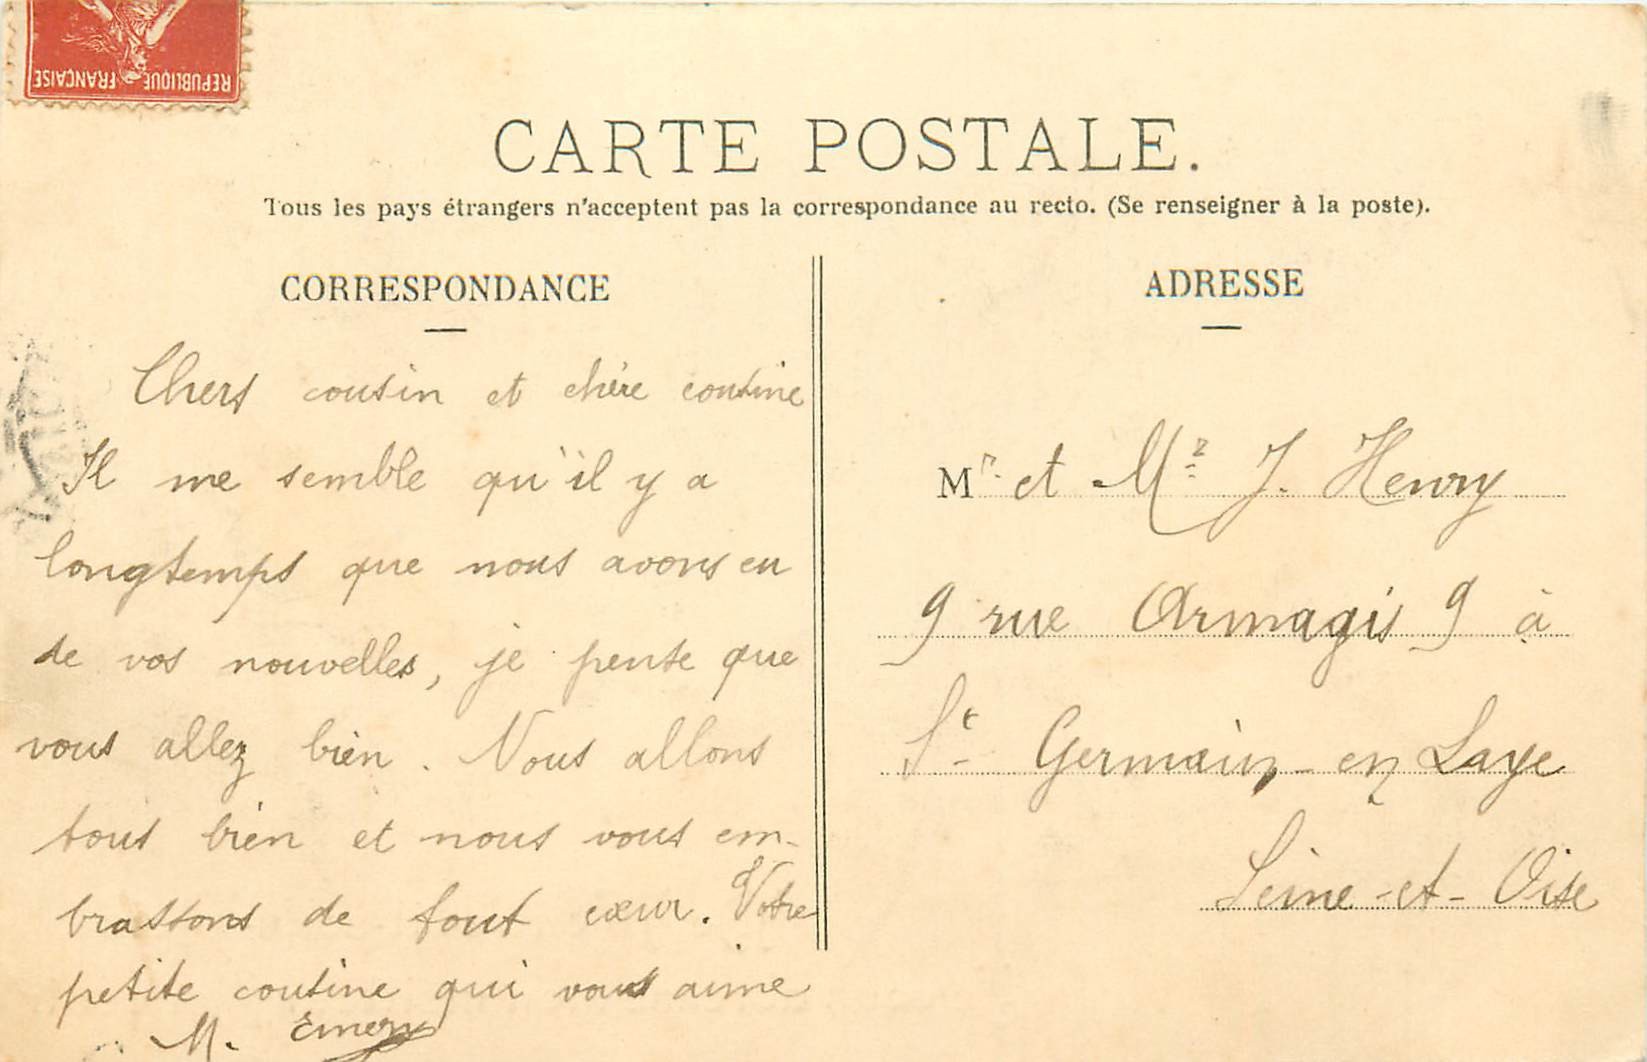 REPUBLIQUE FRANÇAISE
CARTE POSTALE.
Tous les pays étrangers n'acceptent pas la correspondance au recto. (Se renseigner à la poste).
CORRESPONDANCE
Chers cousin et chère cousine
Il me semble qu'il y a
longtemps que nous avons eu
de vos nouvelles, je pense que
vous allez bien. Nous allons
tous bien et nous vous em-
brassons de tout cœur. Votre
petite cousine qui vous aime
M. Emery
ADRESSE
Mr et Me J. Henry
9 rue Armagis 9 à
St Germain-en Laye
Seine-et-Oise